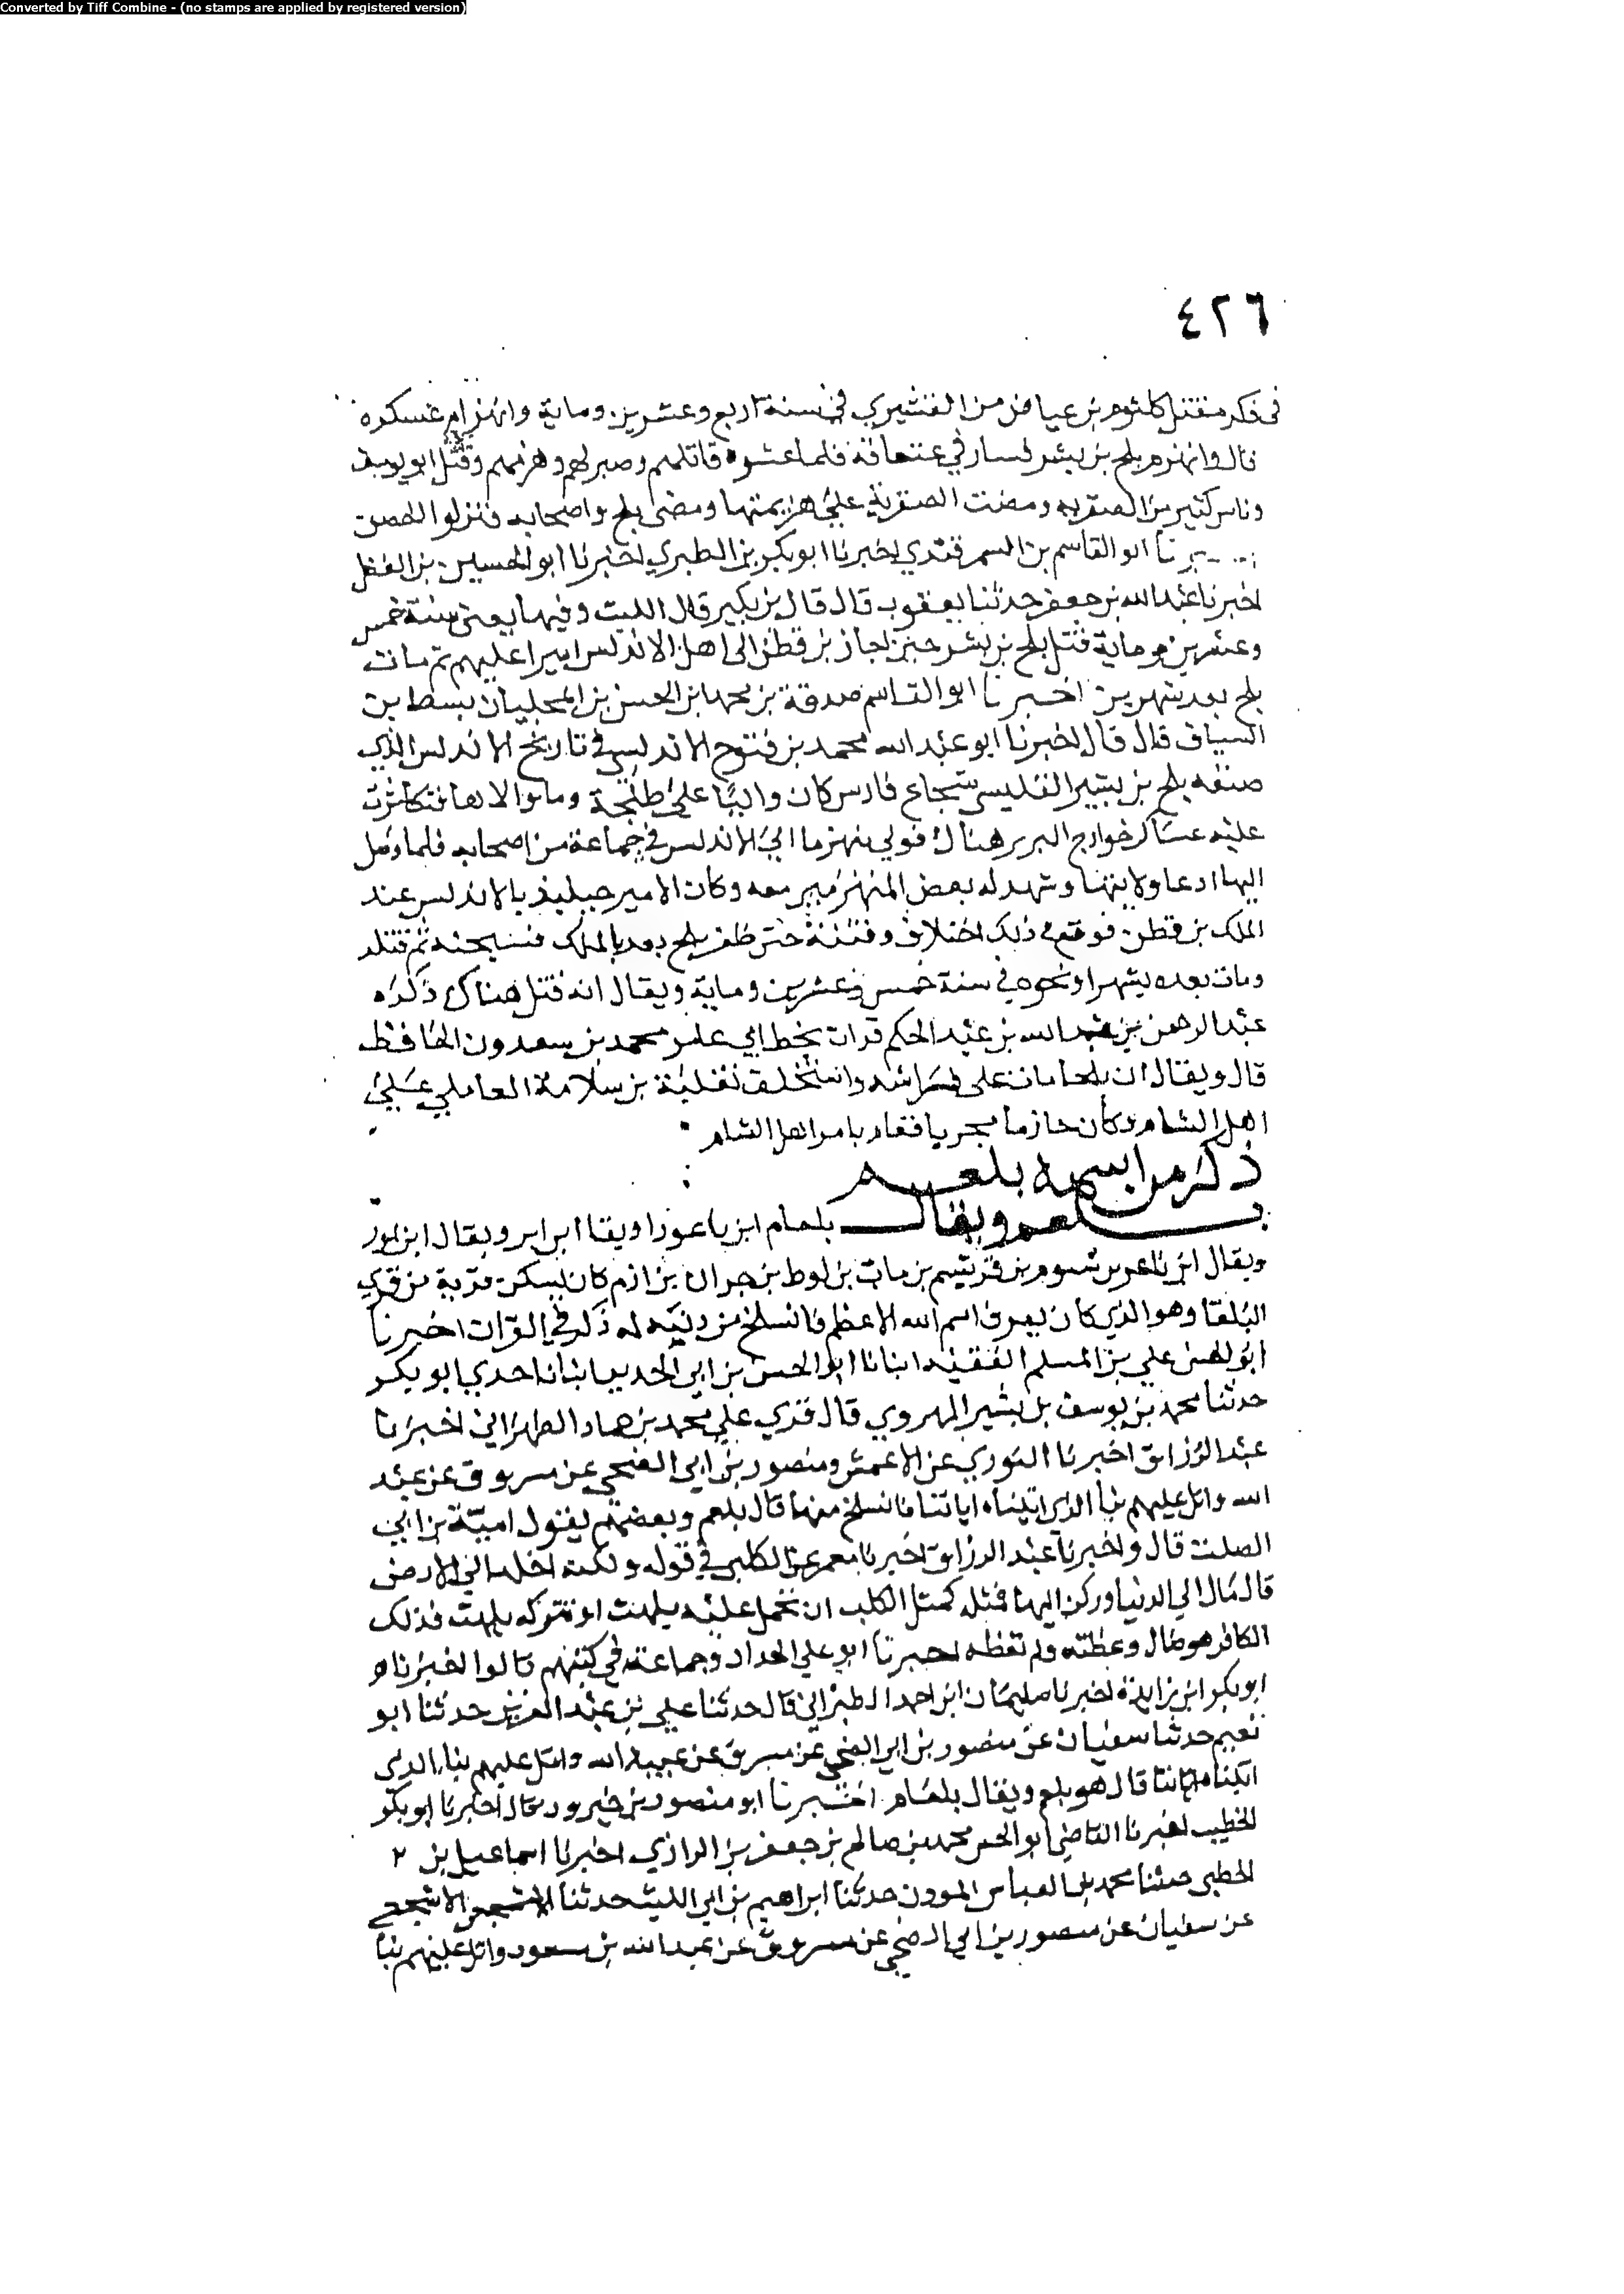 Converted by Tiff Combine - (no stamps are applied by registered version)
٤٢٦
في ذكر مقتل كلثوم بن عياض من القشيري في سنة اربع وعشرين وماية وانهزام عسكره
قال وانهزم بلج بن بشر فسار في فلما غشوه قاتلهم وصبر لهم وهزمهم وقتل ابو يوسف
وناس كثير من الصفريه ومضت الصفرية على هزيمتها ومضى بلج واصحابه فنزلوا
ابو القاسم بن السمرقندي اخبرنا ابو بكر بن الطبري اخبرنا ابو الحسين بن الفضل
اخبرنا عبد الله بن جعفر حدثنا يعقوب قال قال بن بكير قال الليث وفيها يعني سنة خمس
وعشرين وماية قتل بلج بن بشر بن قطن الى اهل الاندلس اميرا عليهم ثم مات
بلج بعد بشهرين اخبرنا ابو القاسم صدقة بن محمد ابن الحسن بن المحلبان بسط بن
السياف قال قال اخبرنا ابو عبد الله محمد بن فتوح الاندلسي في تاريخ الاندلس الذي
صنفه بلج بن بشير القليسي شجاع فارس كان واليا على طنجة وما والاها فتكاثرت
عليه عساكر خوارج البربر هناك فولى منهزما الى الاندلس في جماعة من اصحابه فلما وصل
اليها ادعا ولايتها وشهد له بعض المنهزمين معه وكان الامير حينيذ بالاندلس عبد
الملك بن قطن فوقع في ذلك اختلاف وفتنة حتى ظفر بلج بعبد الملك فسجنه ثم قتله
ومات بعده بشهر او نحوه في سنة خمس وعشرين وماية ويقال انه قتل هناك ذكره
عبد الرحمن بن عبد الله بن عبد الحكم قرات بخط ابي عامر محمد بن سعدون الحافظ
قال ويقال ان بلحا مات على فراشه واستخلف ثعلبة بن سلامة العاملي على
اهل الشام وكان حازما مجربا فقام بامر اهل الشام
ذكر من اسمه بلعم
بلعم ويقال بلعام ابن باعورا ويقا ابن ابر ويقال ابن اور
ويقال ابن باعر بن شوم بن قريشيم بن ماب بن لوط بن حران بن ازم كان يسكن قرية من قري
البلقا وهو الذي كان يعرف اسم الله الاعظم فانسلخ من دينه له ذكر في القران اخبرنا
ابو الحسن علي بن المسلم الفقيه انبانا ابو الحسن بن ابي الحديد انبانا جدي ابو بكر
حدثنا محمد بن يوسف بن بشير الهروي قال قري علي محمد بن حماد الطهراني اخبرنا
عبد الرزاق اخبرنا الثوري عن الاعمش ومنصور بن ابي الضحى عن مسروق عن عبد
الله واتل عليهم نبا الذي اتيناه اياتنا فانسلخ منها قال بلعم وبعضهم يقول امية بن ابي
الصلت قال واخبرنا عبد الرزاق اخبرنا معمر عن الكلبي في قوله ولكنه اخلد الى الارض
قال مال الي الدنيا وركن اليها فمثله كمثل الكلب ان تحمل عليه يلهث او تتركه يلهث فذلك
الكافر هو ضال وعظته ولم تعظه اخبرنا ابو علي الحداد وجماعة في كتبهم قالوا اخبرنا
ابو بكر ابن ريذة اخبرنا سليمان ابن احمد الطبراني قال حدثنا علي بن عبد العزيز حدثنا ابو
نعيم حدثنا سفيان عن منصور بن ابي الضحى عن مسروق عن عبد الله واتل عليهم نبا الذي
اتيناه اياتنا قال هو بلعم ويقال بلعام اخبرنا ابو منصور بن خيرون قال اخبرنا ابو بكر
الخطيب اخبرنا القاضي ابو الحسن محمد بن صالح بن جعفر بن الرازي اخبرنا اسماعيل بن ٢
الخطبي حدثنا محمد بن العباس المودن حدثنا ابراهيم بن ابي الليث حدثنا الاشجعي
عن سفيان عن منصور بن ابي الضحى عن مسروق عن عبد الله بن مسعود واتل عليهم نبا